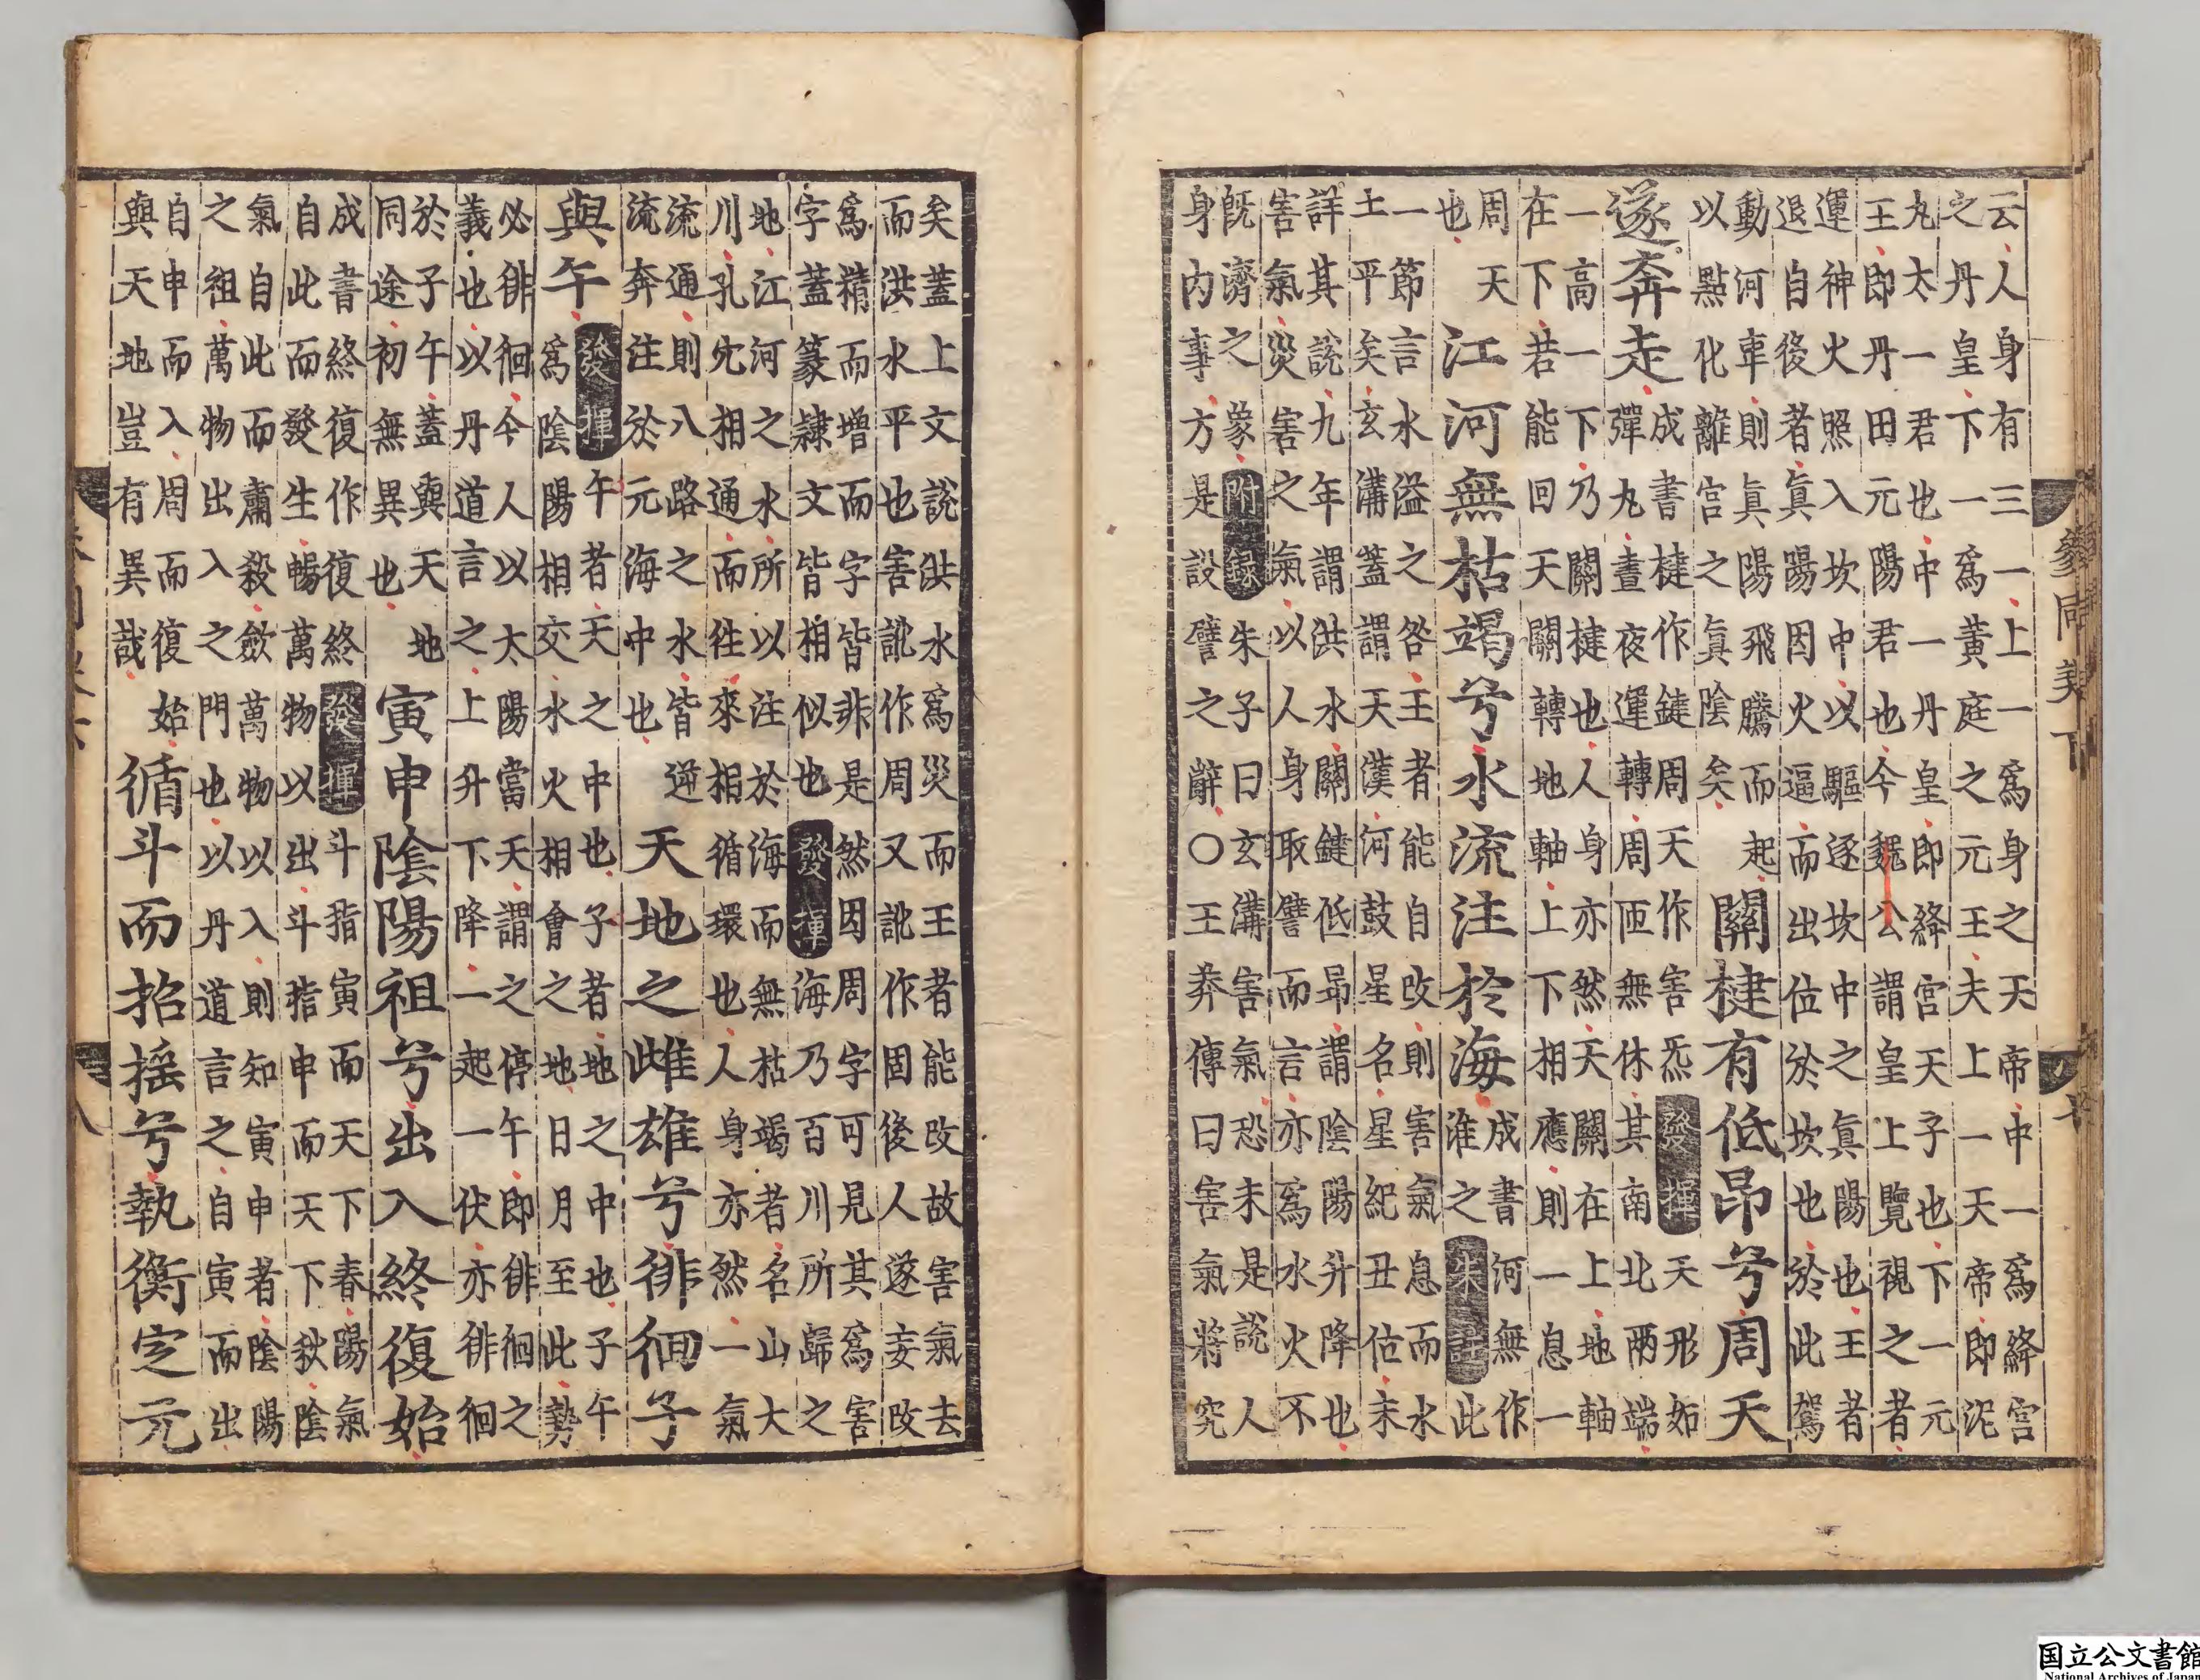 參同契下
七
云人身有三一上一爲身之天帝中一爲絳宮
之丹皇下一爲黃庭之元王夫上一天帝即泥
丸太一君也中一丹皇即絳宮天子也下一元
王即丹田元陽君也今魏公謂皇上覽視之者
運神火照入坎中以驅逐坎中之眞陽也王者
退自後者眞陽因火逼而出位於坎也於此駕
動河車則眞陽飛騰而起
以點化離宮之眞陰矣
關楗有低昂兮周天
遂奔走
成書楗作鍵周天作害炁發揮天形如
彈丸晝夜運轉周匝無休其南北兩端
一高一下乃關楗也人身亦然天關在上地軸
在下若能回天關轉地軸上下相應則一息一
周天
也
江河無枯竭兮水流注於海
成書河無作
淮之朱註此
一節言水溢之咎王者能自改則害氣息而水
土平矣玄溝蓋謂天漢河鼓星名星紀丑位未
詳其說九年謂洪水關鍵低昻謂陰陽升降也
害氣災害之氣以人身取譬而言亦爲水火不
旣濟之象附錄朱子曰玄溝害氣恐未是說人
身內事方是設譬之辭○王莽傳曰害氣將究
矣蓋上文說洪水爲災而王者能改故害氣去
而洪水平也害訛作周又訛作固後人遂妄改
爲精而增而字皆非是然因周字可見其爲害
字蓋篆隷文皆相似也發揮海乃百川所歸之
地江河之水所以注於海而無枯竭者名山大
川孔穴相通而往來相循環也人身亦然一氣
流通則八路之水皆逆
流奔注於元海中也
天地之雌雄兮徘徊子
與午
發揮午者天之中也子者地之中也子午
爲陰陽相交水火相會之地日月至此勢
必徘徊今人以太陽當天謂之停午即徘徊之
義也以丹道言之上升下降一起一伏亦徘徊
於子午蓋與天地
同途初無異也
寅申陰陽祖兮出入終復始
成書終復作復終發揮斗指寅而天下春陽氣
自此而發生暢萬物以出斗指申而天下秋陰
氣自此而肅殺歛萬物以入則知寅申者陰陽
之祖萬物出入之門也以丹道言之自寅而出
自申而入周而復始
與天地豈有異哉
循斗而招搖兮執衡定元
国立公文書館
National Archives of Japan